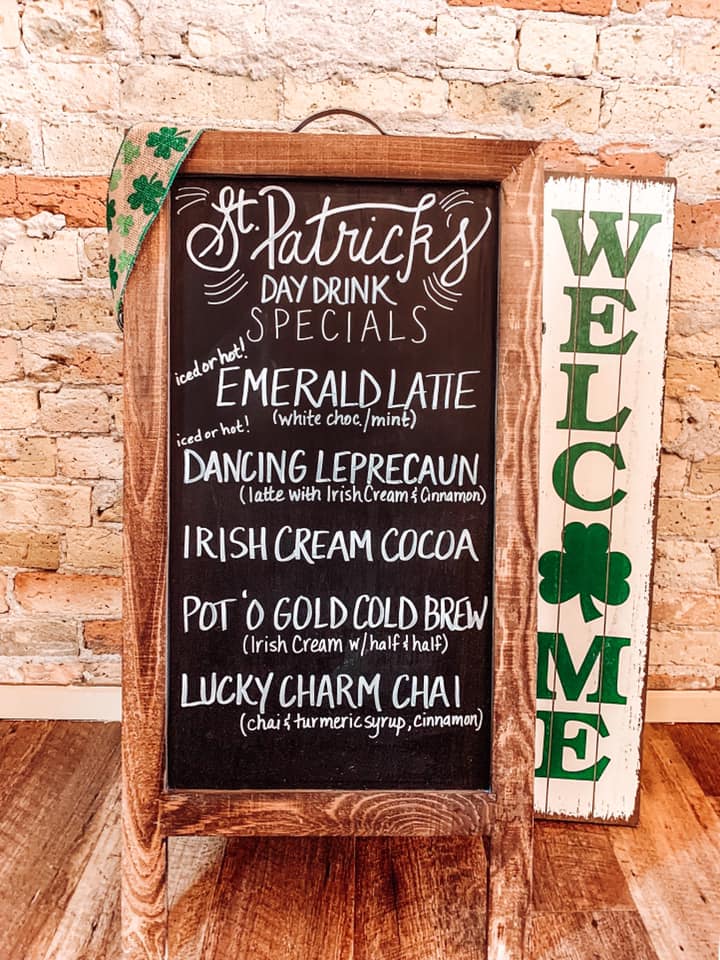 St. Patrick's
DAY DRINK
SPECIALS
iced or hot!
EMERALD LATTE
(white choc./mint)
iced or hot!
DANCING LEPRECAUN
(latte with Irish Cream & Cinnamon)
IRISH CREAM COCOA
POT 'O GOLD COLD BREW
(Irish Cream w/half & half)
LUCKY CHARM CHAI
(chai & turmeric syrup, cinnamon)
WELC☘ME